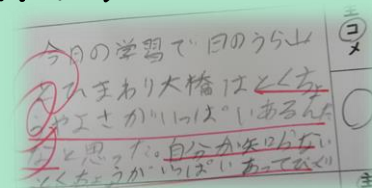 今日の学習で日のうら山
とひまわり大橋はとくちょ
うやよさがいっぱいあるんだ
なと思った。自分が知らない
とくちょうがいっぱいあってびっく
コ
メ